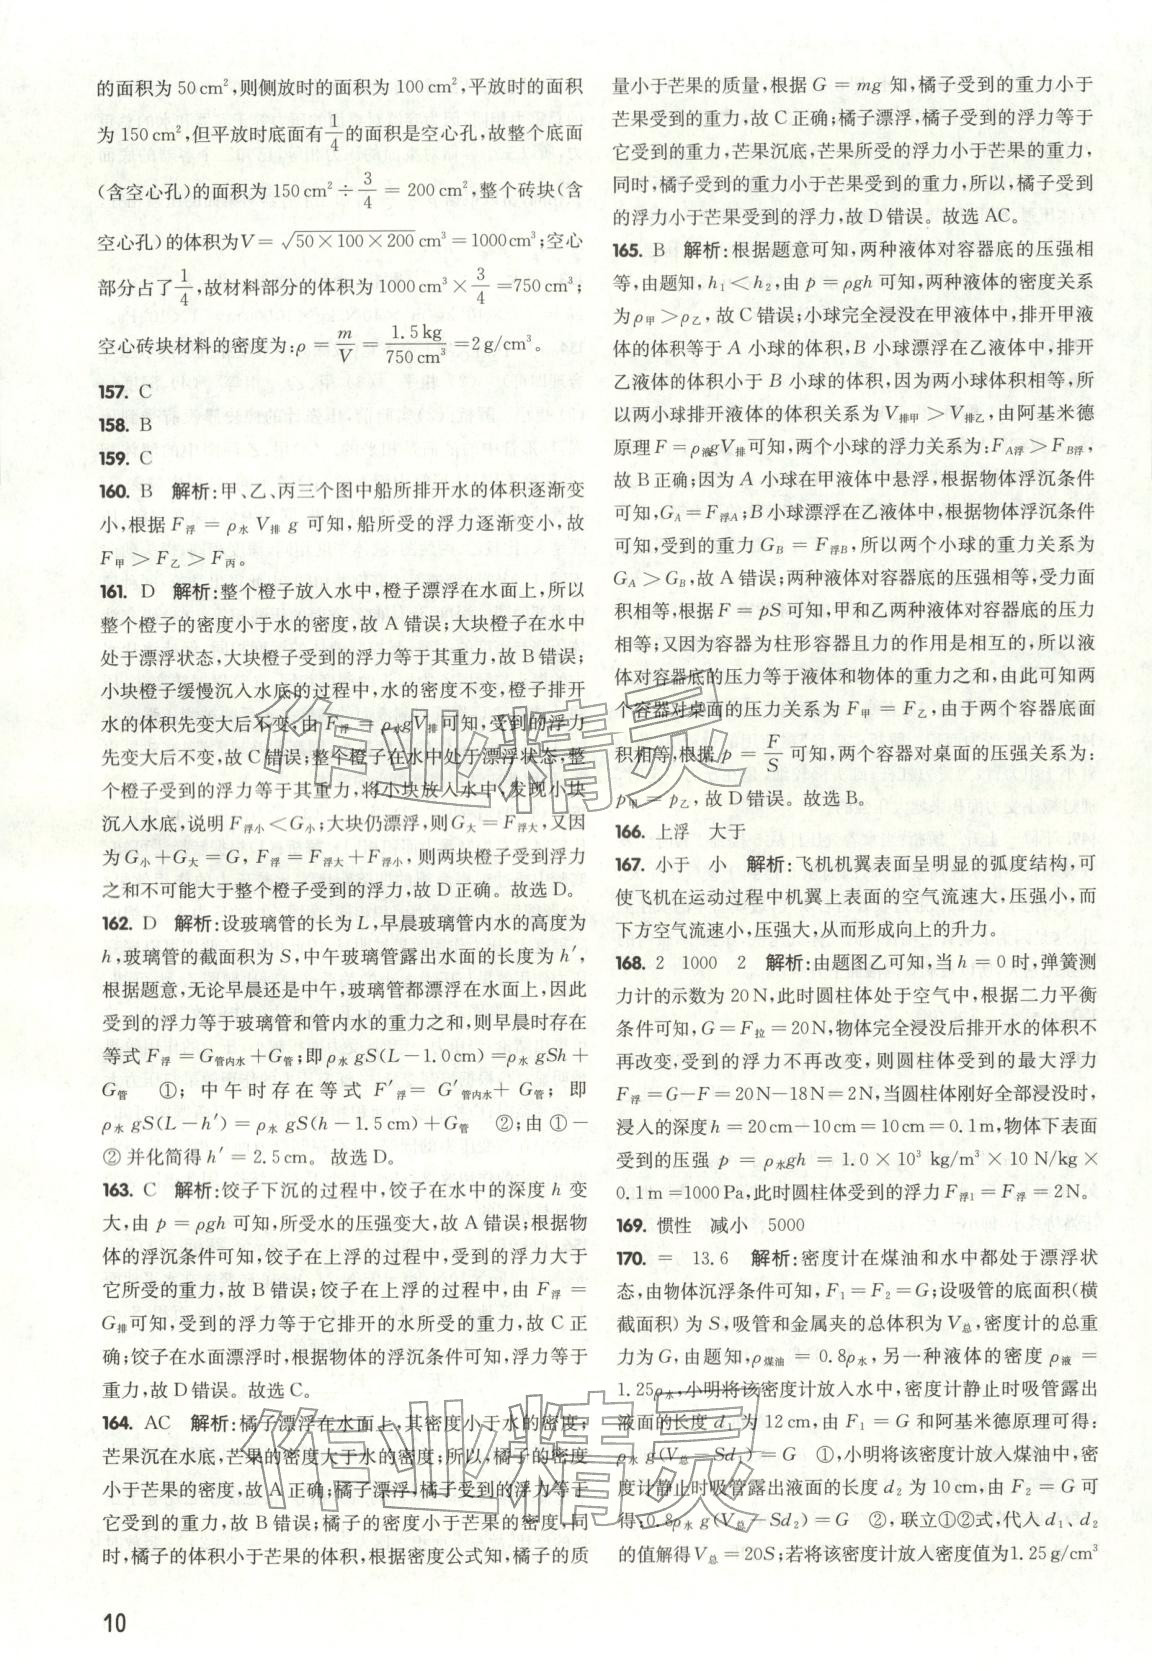 的面积为 50 cm²,则侧放时的面积为 100 cm²,平放时的面积
为 150 cm²,但平放时底面有1/4的面积是空心孔,故整个底面
(含空心孔)的面积为 150 cm² ÷ 3/4 = 200 cm²,整个砖块(含
空心孔)的体积为V = √50×100×200 cm³ = 1000 cm³;空心
部分占了1/4,故材料部分的体积为 1000 cm³ × 3/4 = 750 cm³;
空心砖块材料的密度为:ρ = m/V = 1.5 kg/750 cm³ = 2 g/cm³。
157. C
158. B
159. C
160. B 解析:甲、乙、丙三个图中船所排开水的体积逐渐变
小,根据 F浮 = ρ水 V排 g 可知,船所受的浮力逐渐变小,故
F甲 > F乙 > F丙。
161. D 解析:整个橙子放入水中,橙子漂浮在水面上,所以
整个橙子的密度小于水的密度,故 A 错误;大块橙子在水中
处于漂浮状态,大块橙子受到的浮力等于其重力,故 B 错误;
小块橙子缓慢沉入水底的过程中,水的密度不变,橙子排开
水的体积先变大后不变,由 F浮 = ρ水gV排 可知,受到的浮力
先变大后不变,故 C 错误;整个橙子在水中处于漂浮状态,整
个橙子受到的浮力等于其重力,将小块放入水中,发现小块
沉入水底,说明 F浮小 < G小;大块仍漂浮,则G大 = F浮大,又因
为 G小 + G大 = G, F浮 = F浮大 + F浮小,则两块橙子受到浮力
之和不可能大于整个橙子受到的浮力,故 D 正确。故选 D。
162. D 解析:设玻璃管的长为 L,早晨玻璃管内水的高度为
h,玻璃管的截面积为 S,中午玻璃管露出水面的长度为 h′,
根据题意,无论早晨还是中午,玻璃管都漂浮在水面上,因此
受到的浮力等于玻璃管和管内水的重力之和,则早晨时存在
等式 F浮 = G管内水 + G管;即 ρ水 gS(L - 1.0 cm) = ρ水 gSh +
G管 ①;中午时存在等式 F′浮 = G′管内水 + G管;即
ρ水 gS(L - h′) = ρ水 gS(h - 1.5 cm) + G管 ②;由 ① -
② 并化简得 h′ = 2.5 cm。故选 D。
163. C 解析:饺子下沉的过程中,饺子在水中的深度 h 变
大,由 p = ρgh 可知,所受水的压强变大,故 A 错误;根据物
体的浮沉条件可知,饺子在上浮的过程中,受到的浮力大于
它所受的重力,故 B 错误;饺子在上浮的过程中,由 F浮 =
G排可知,受到的浮力等于它排开的水所受的重力,故 C 正
确;饺子在水面漂浮时,根据物体的浮沉条件可知,浮力等于
重力,故 D 错误。故选 C。
164. AC 解析:橘子漂浮在水面上,其密度小于水的密度;
芒果沉在水底,芒果的密度大于水的密度;所以,橘子的密度
小于芒果的密度,故 A 正确;橘子漂浮,橘子受到的浮力等于
它受到的重力,故 B 错误;橘子的密度小于芒果的密度,同
时,橘子的体积小于芒果的体积,根据密度公式知,橘子的质
量小于芒果的质量,根据 G = mg 知,橘子受到的重力小于
芒果受到的重力,故 C 正确;橘子漂浮,橘子受到的浮力等于
它受到的重力,芒果沉底,芒果所受的浮力小于芒果的重力,
同时,橘子受到的重力小于芒果受到的重力,所以,橘子受到
的浮力小于芒果受到的浮力,故 D 错误。故选 AC。
165. B 解析:根据题意可知,两种液体对容器底的压强相
等,由题知, h₁ < h₂,由 p = ρgh 可知,两种液体的密度关系
为 ρ甲 > ρ乙,故 C 错误;小球完全浸没在甲液体中,排开甲液
体的体积等于 A 小球的体积, B 小球漂浮在乙液体中,排开
乙液体的体积小于 B 小球的体积,因为两小球体积相等,所
以两小球排开液体的体积关系为 V排甲 > V排乙,由阿基米德
原理 F = ρ液gV排 可知,两个小球的浮力关系为:FA浮 > FB浮,
故 B 正确;因为 A 小球在甲液体中悬浮,根据物体浮沉条件
可知,GA = F浮A;B 小球漂浮在乙液体中,根据物体浮沉条件
可知,受到的重力 GB = F浮B,所以两个小球的重力关系为
GA > GB,故 A 错误;两种液体对容器底的压强相等,受力面
积相等,根据 F = pS 可知,甲和乙两种液体对容器底的压力
相等;又因为容器为柱形容器且力的作用是相互的,所以液
体对容器底的压力等于液体和物体的重力之和,由此可知两
个容器对桌面的压力关系为 F甲 = F乙,由于两个容器底面
积相等,根据 p = F/S 可知,两个容器对桌面的压强关系为:
p甲 = p乙,故 D 错误。故选 B。
166. 上浮 大于
167. 小于 小 解析:飞机机翼表面呈明显的弧度结构,可
使飞机在运动过程中机翼上表面的空气流速大,压强小,而
下方空气流速小,压强大,从而形成向上的升力。
168. 2 1000 2 解析:由题图乙可知,当 h = 0 时,弹簧测
力计的示数为 20 N,此时圆柱体处于空气中,根据二力平衡
条件可知,G = F拉 = 20 N,物体完全浸没后排开水的体积不
再改变,受到的浮力不再改变,则圆柱体受到的最大浮力
F浮 = G - F = 20 N - 18 N = 2 N,当圆柱体刚好全部浸没时,
浸入的深度 h = 20 cm - 10 cm = 10 cm = 0.1 m,物体下表面
受到的压强 p = ρ水gh = 1.0 × 10³ kg/m³ × 10 N/kg ×
0.1 m = 1000 Pa,此时圆柱体受到的浮力 F浮1 = F浮 = 2 N。
169. 惯性 减小 5000
170. = 13.6 解析:密度计在煤油和水中都处于漂浮状
态,由物体沉浮条件可知, F₁ = F₂ = G;设吸管的底面积(横
截面积)为 S,吸管和金属夹的总体积为 V总,密度计的总重
力为 G,由题知,ρ煤油 = 0.8ρ水,另一种液体的密度 ρ液 =
1.25ρ水,小明将该密度计放入水中,密度计静止时吸管露出
液面的长度 d₁ 为 12 cm,由 F₁ = G 和阿基米德原理可得:
ρ水 g(V总 - Sd₁) = G ①,小明将该密度计放入煤油中,密
度计静止时吸管露出液面的长度 d₂ 为 10 cm,由 F₂ = G 可
得:0.8ρ水 g(V总 - Sd₂) = G ②,联立①②式,代入 d₁、d₂
的值解得 V总 = 20S;若将该密度计放入密度值为1.25 g/cm³
10
作业精灵
作业精灵